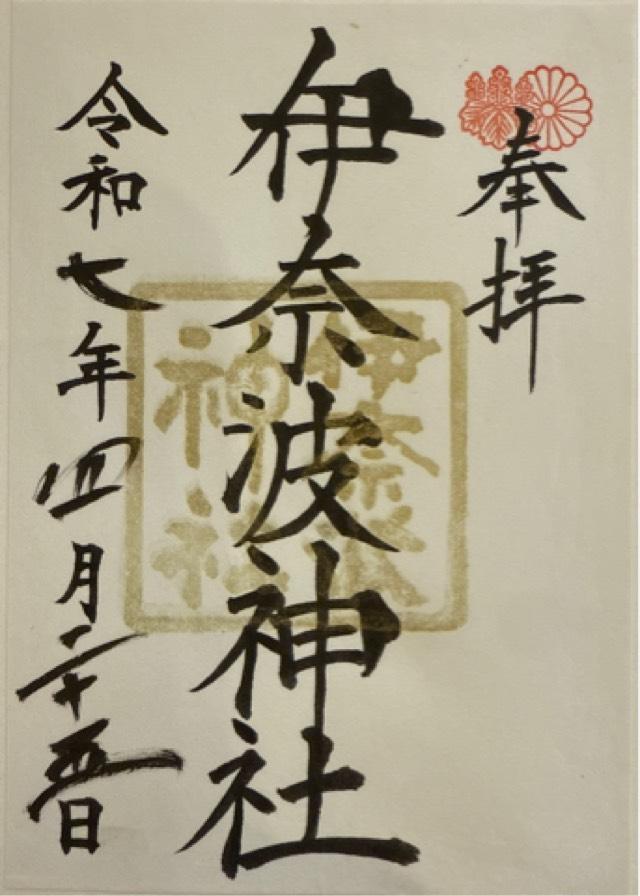 奉拝
伊奈波神社
伊奈波
神社
令和七年四月二十五日